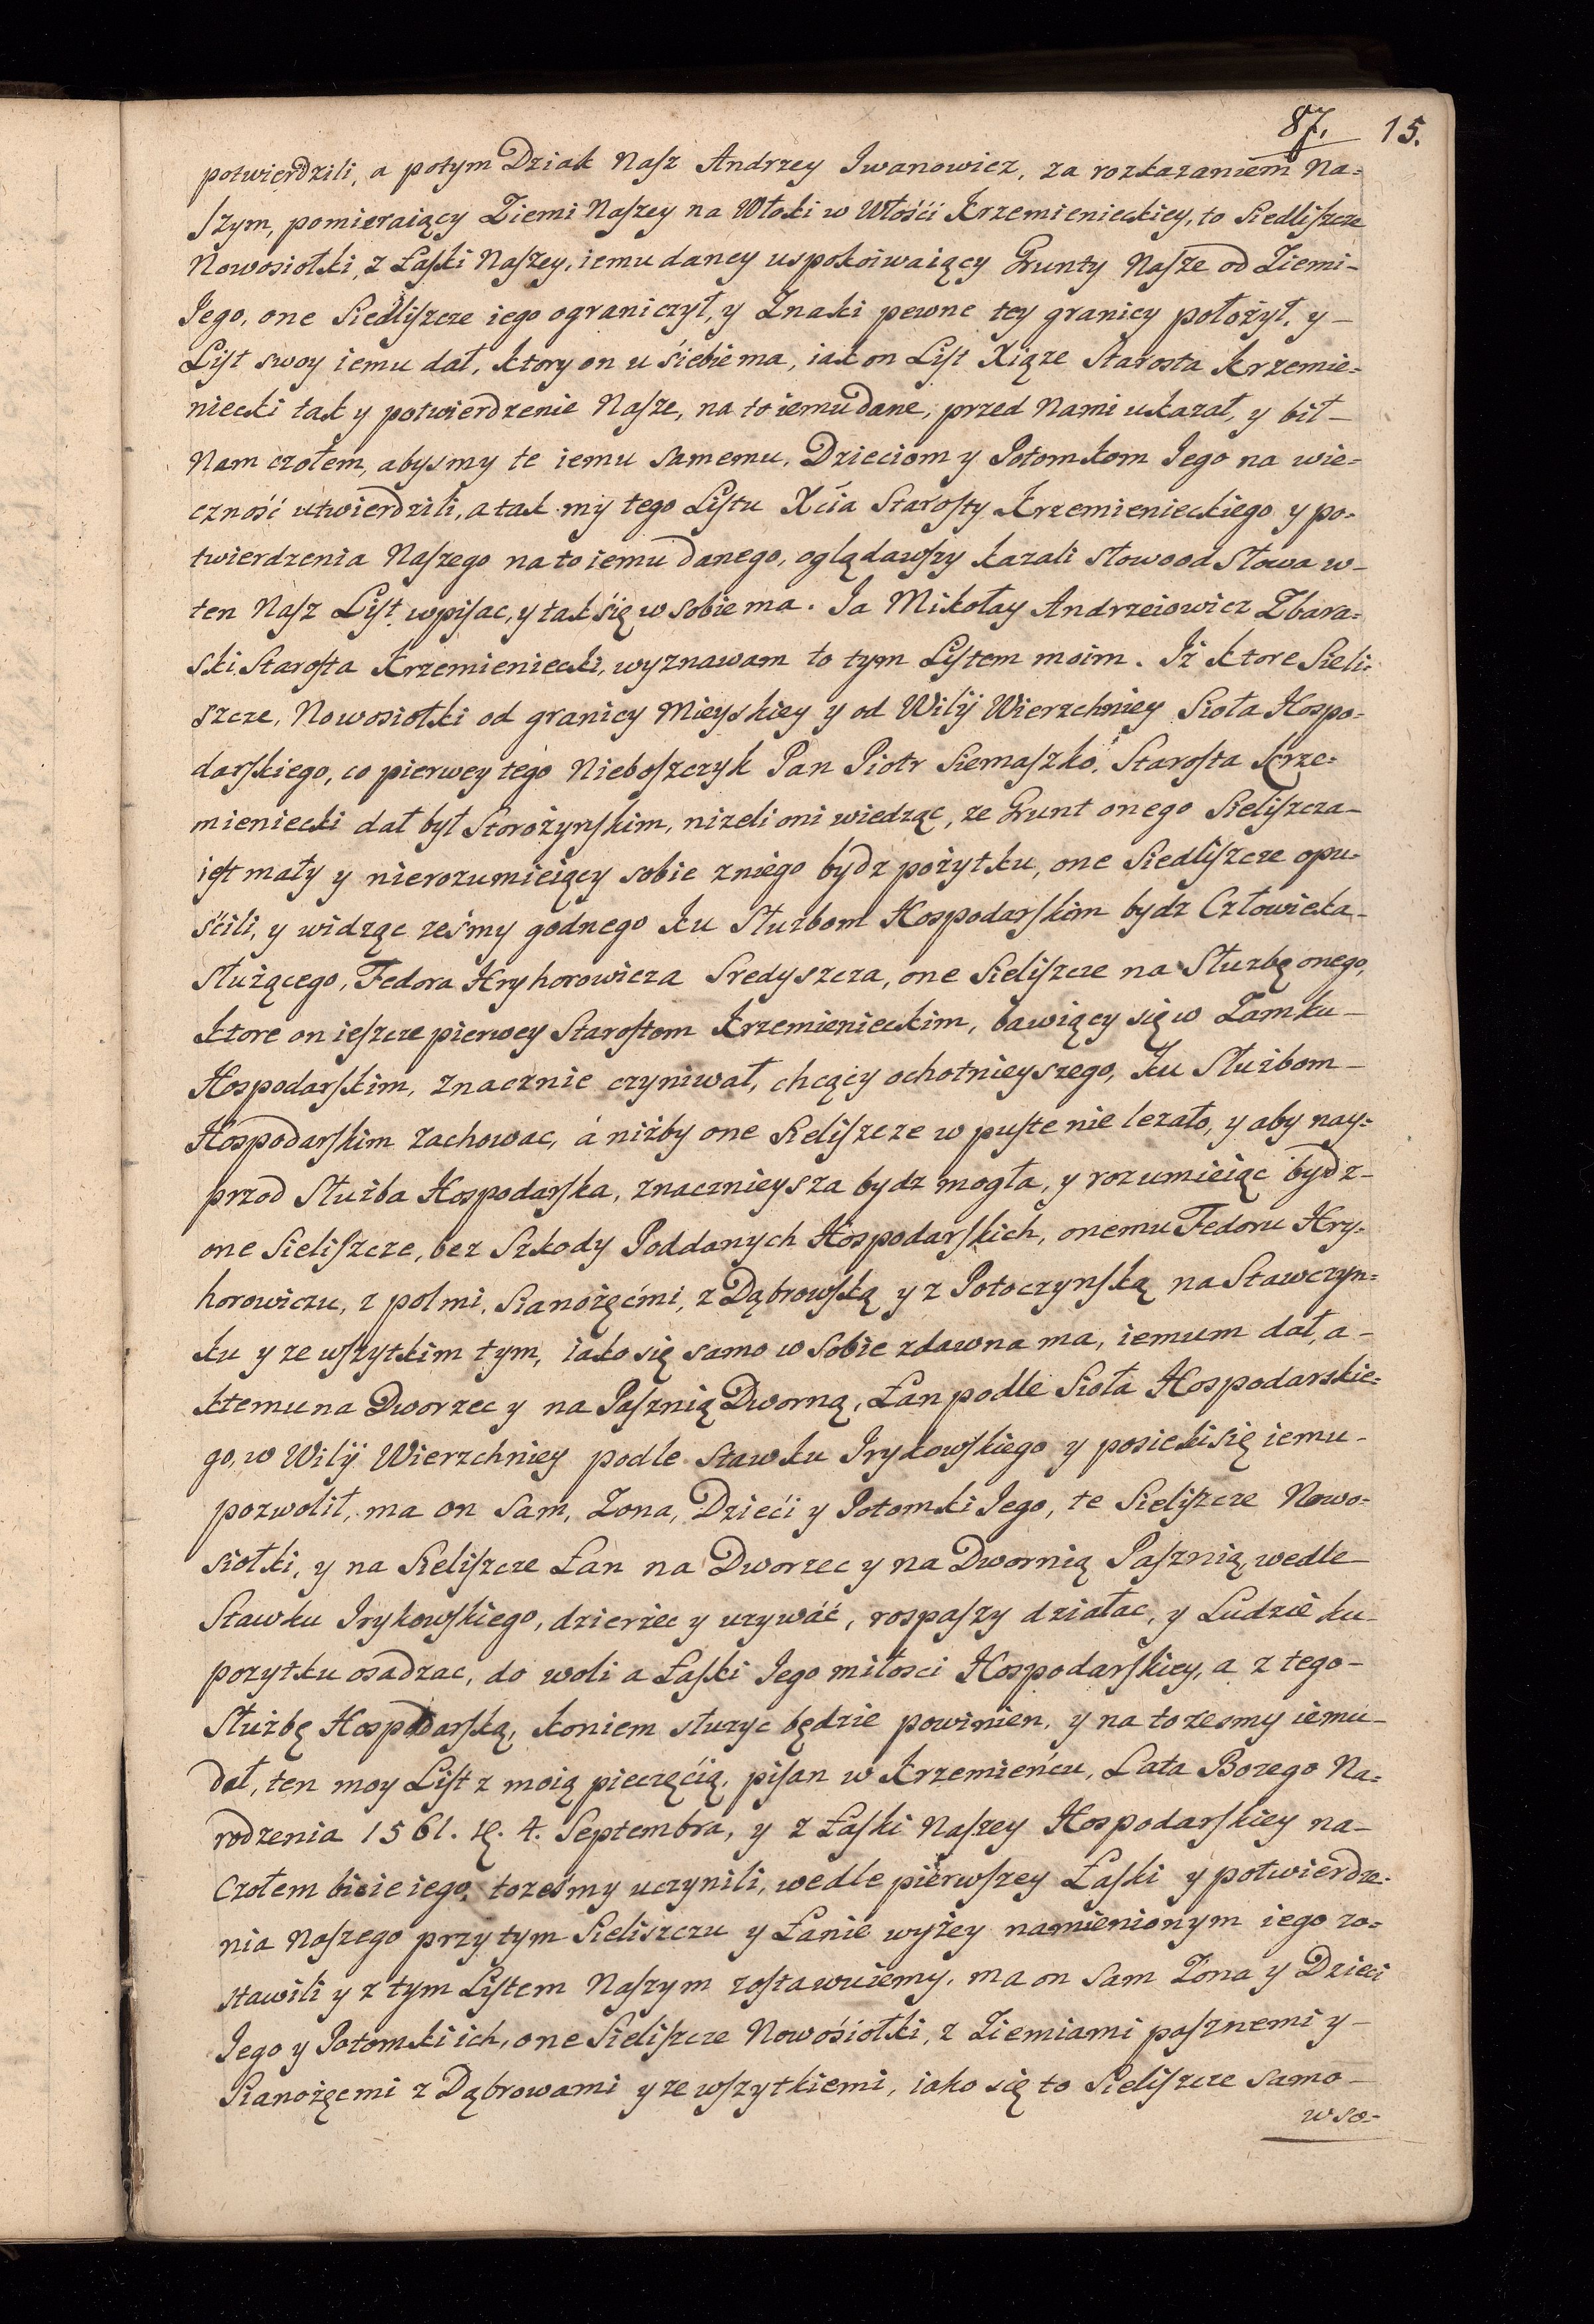 87. 15.
potwierdzili, a potym Dziak Nasz Andrzey Iwanowicz, za rozkazaniem Na=
szym, pomieraiący Ziemi Naszey na Włoki w Włośći Krzemienieckiey, to Siedliszcze
Nowosiołki, z Łaski Naszey, iemu daney uspokoiwaiący Grunty Nasze od Ziemi-
Iego, one Siedliszcze iego ograniczył, y Znaki pewne tey granicy położył, y-
List swoy iemu dał, ktory on u śiebie ma, iak on List Xiąze Starosta Krzemie=
niecki tak y potwierdzenie Nasze, na to iemu dane, przed Nami ukazał, y bił-
Nam czołem, abysmy te iemu samemu, Dzieciom y Potomkom Iego na wie=
czność utwierdzili, a tak my tego Listu Xcia Starosty Krzemienieckiego y po=
twierdzenia Naszego na to iemu danego, oglądawszy kazali słowo od słowa w-
ten Nasz List wpisac, y tak śię w sobie ma. Ia Mikołay Andrzeiowicz Zbara=
ski Starosta Krzemieniecki, wyznawam to tym Listem moim. Iż ktore Sieli=
szcze, Nowosiołki od granicy Mieyskiey y od Wilÿ Wierzchniey Sioła Hospo=
darskiego, co pierwey tego Nieboszczyk Pan Piotr Siemaszko, Starosta Krze=
mieniecki dał był Storożynskim, nizeli oni wiedząc, ze Grunt onego Sieliszcza-
iest mały y nierozumieiący sobie zniego bydz pożytku, one Siedliszcze opu=
śćili, y widząc ześmy godnego ku Słuzbom Hospodarskim bydz Człowieka-
Służącego, Fedora Hryhorowicza Sredyszcza, one Sieliszcze na Słuzbę onego,
ktore on ieszcze pierwey Starostom Krzemienieckim, bawiący się w Zamku-
Hospodarskim, znacznie czyniwał, chcący ochotnieyszego, ku Służbom-
Hospodarskim zachowac, á niżby one Sieliszcze w puste nie lezało, y aby nay=
przod Służba Hospodarska, znacznieysza bydz mogła, y rozumieiąc bydz-
one Sieliszcze, bez Szkody Poddanych Hospodarskich, onemu Fedoru Hry=
horowiczu, z polmi, Sianożęćmi, z Dąbrowską y z Potoczynską na Stawczyn=
ku y ze wszytkim tym, iako się samo w sobie zdawna ma, iemum dał, a-
ktemu na Dworzec y na Pasznią Dworną, Łan podle Sioła Hospodarskie=
go, w Wilÿ Wierzchniey podle Stawku Irykowskiego y posieki się iemu-
pozwolił, ma on sam, Zona, Dzieći y Potomki Iego, te Sieliszcze Nowo=
siołki, y na Sieliszcze Łan na Dworzec y na Dwornią Pasznią, wedle-
Stawku Irykowskiego, dzierżec y uzywáć, rospaszy działac, y Ludzie ku-
pozytku osadzac, do woli a Łaski Iego miłosci Hospodarskiey, a z tego-
Służbę Hospodarską, koniem słuzyc będzie powinien, y na to zesmy iemu-
dał, ten moy List z moią pieczęćią, pisan w Krzemieńcu, Lata Bozego Na=
rodzenia 1561. 4. Septembra, y z Łaski Naszey Hospodarskiey na-
Czołem bicie iego, to zesmy uczynili, wedle pierwszey Łaski y potwierdze=
nia Naszego przy tym Sieliszczu y Łanie wyżey namienionym iego zo=
stawili y z tym Listem Naszym zostawuiemy, ma on sam Żona y Dzieci
Iego y Potomki ich, one Sieliszcze Nowośiołki, z Ziemiami pasznemi y-
Sianożęcmi z Dąbrowami y ze wszytkiemi, iako się to Sieliszcze samo-
w so=